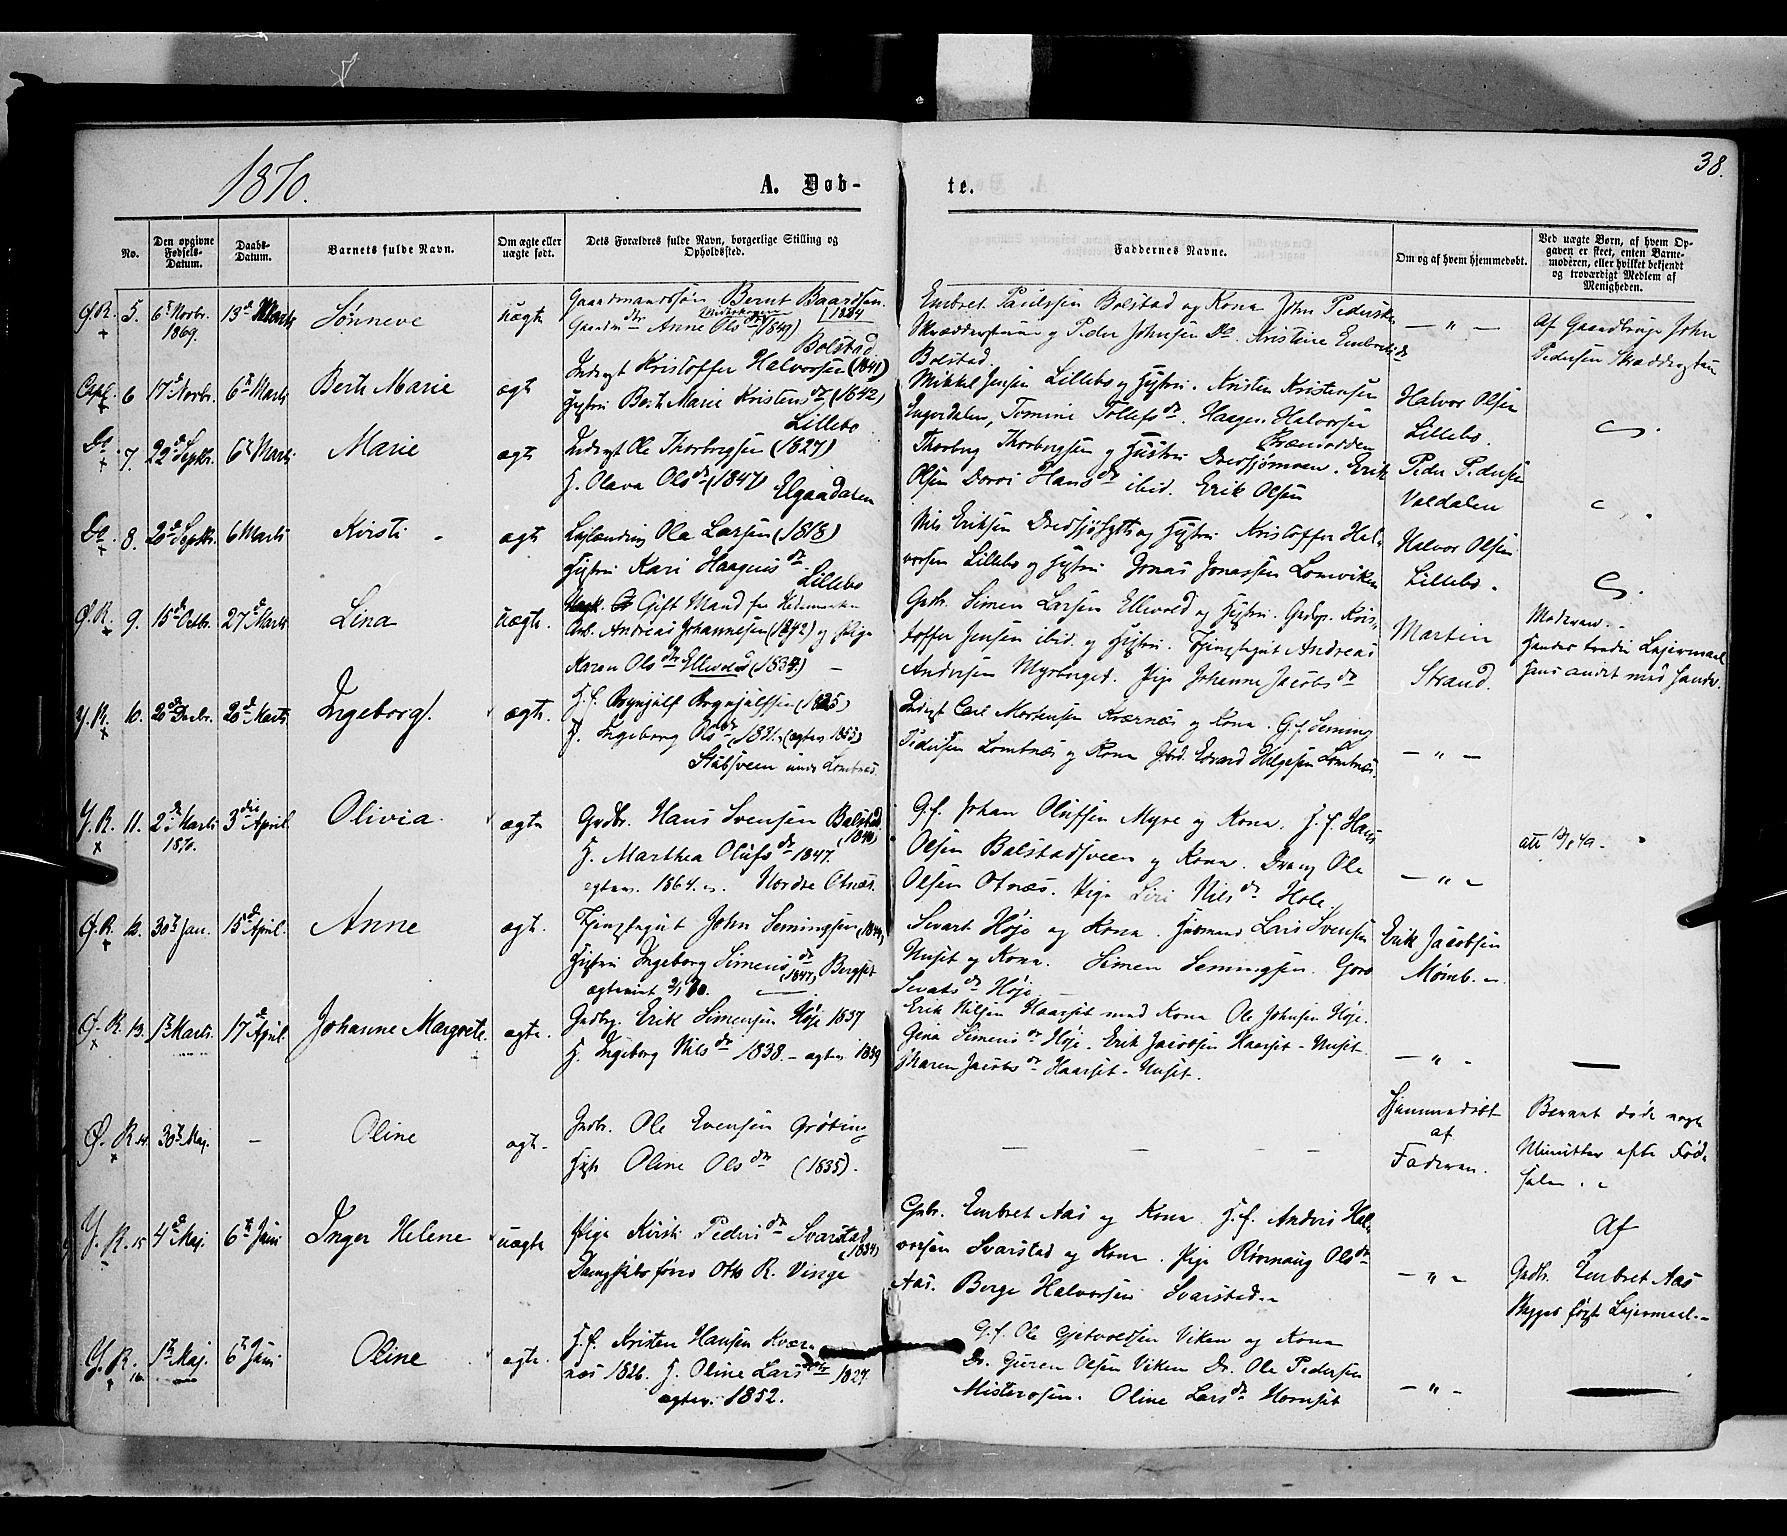 1870.
A. Døb-
te.
38.
No.
Den opgivne Fødsels-Datum.
Daabs-Datum.
Barnets fulde Navn.
Om ægte eller uægte født.
Dets Forældres fulde Navn, borgerlige Stilling og Opholdssted.
Faddernes Navne.
Om og af hvem hjemmedøbt.
Ved uægte Børn, af hvem Opgaven er skeet, enten Barnemoderen, eller hvilket bekjendt og troværdigt Medlem af Menigheden.
Ø.R. 5. 6t Novbr. 1869. 13d Marts Sønneve uægte
Gaardmandssøn Bernt Baardsen (1844
Gaardmdtr Anne Olsdtr (1849)
Bolstad
Embret Paulsen Bolstad og Kona John Pedersen
og Peder Johnsen Do. Kristine Embretsdr
Bolstad.
— " —
Af Gaardbruger John
Pedersen
6 17d Novbr. 6t Marts Berte Marie ægte
Inderst Kristoffer Halvorsen (1841)
Hustru Berte Marie Kristensdr (1842)
Lillebo
Mikkel Jensen Lillebo og Hustru. Kristen Kristensen
Engerdalen, Tomine Tollefsdr. Haagen Halvorsen
Halvor Olsen
Lillebo.
Do 7. 22d Septbr. 6t Marts Marie ægte
Inderst Ole Thorbergsen (1827)
H. Olava Olsdr (1847) Elgaadalen
Thorberg Thorbergsen og Hustru Drevsjømoen. Erik
Olsen Hansdr ibid. Erik Olsen
Peder Pedersen
Valdalen
Do. 8. 20d Septbr. 6 Marts Kirsti ægte
Leilænding Ole Larsen (1818)
Hustru Kari Haagensdr
Lillebo
Nils Eriksen og Hustru Kristoffer Hal-
vorsen Lillebo og Hustru Jonas Jonassen Lomviken
Halvor Olsen
Lillebo.
Ø.R. 9. 15d Octbr. 27d Marts Lina uægte.
Gift Mand fra Hedemarken
Arb. Andreas Johannesen (1842) og Pige
Karen Olsdtr Ellevold (1834)
Gbr. Simen Larsen Ellevold og Hustru. Gbr. Kris-
toffer Jensen ibid. og Hustru. Tjenestegut Andreas
Andersen Myrborget. Pige Johanne Jacobsdr
Martin
Strand.
Moderen.
Hendes tredie Leiermaal
Hans andet med hende.
Y.R. 10. 20de Decbr. 20d Marts Ingeborg ægte.
H.f. Brynjulf Brynjulfsen (1825)
H. Ingeborg Olsdtr (1831. (ægtev. 1853)
Stubsveen under Lomtnæs.
Inderst Carl Mortensen Kværnæs og Kona. G.f. Seming
Pedersen Lomtnæs og Kona Gbd. Edvard Helgesen Lomtnæs.
— " —
Y.R. 11. 2de Marts 1870. 3die April Olivia. ægte
Gadbr. Hans Svensen Bolstad (1840)
H. Marthea Olufsdr 1847.
ægtev. 1864. Nordre Otnæs.
G.f. Johan Olufsen Myre og Kona. H.f. Hans
Olsen Bolstadsveen og Kona. Dreng Ole
Olsen Otnæs. Pige Siri Nilsdr Hole.
— " —
Ø.R. 12. 30te Jan. 15d April. Anne ægte.
Tjenestegut John Semingsen (1844)
Hustru Ingeborg Simensdr (1847) Bergset
ægteviet
Sivart Høje og Kona. Husmand Lars Svensen
Nuset og Kona. Simen Semingsen. Goro
Sivatsdr Høje
Erik Jacobsen
Ø.R. 13. 1te Marts. 17d April. Johanne Margrete. ægte.
Gadbr. Erik Simensen Høje 1837
H. Ingeborg Nilsdr 1838. – ægtev 1859
Erik Nilsen Haarset med Kona Ole Johnsen Høje.
Gina Simensdr Høje. Erik Jacobsen Haarset-Nuset.
Karen Jacobsdr Haarset-Nuset.
— " —
Ø.R. 14. 30te Maj. – Oline ægte.
Gadbr. Ole Evensen Grøting
Hustr Oline Olsdtr (1835).
— — — —
Hjemmedøbt
af
Faderen.
Barnet døde nogle
Minutter efter Fød-
selen.
Y.R. 15 4d Maj. 6te Juni Inger Helene uægte
Pige Kirsti Pedersdr Svarstad (1834)
Dampskibsfører Otto R. Vinge
Gbr. Embret Aas og Kona H.f. Anders Hal-
vorsen Svarstad og Kona. Pige Rønnaug Olsdr
Aas. Børge Halvorsen Svarstad.
— " —
Af
Gadbr. Embret Aas
Begges første Leiermaal.
Y.R. 16. 1te Maj. 6te Juni Oline ægte.
H.f. Kristen Hansen Kvær-
næs 1826. H. Oline Larsdatr 1827
ægtev. 1852.
G.f. Ole Gjetvoldsen Viken og Kona
Dr. Guren Olsen Viken Dr. Ole Pedersen
Misterosen. Oline Larsdr Hornset
— " —